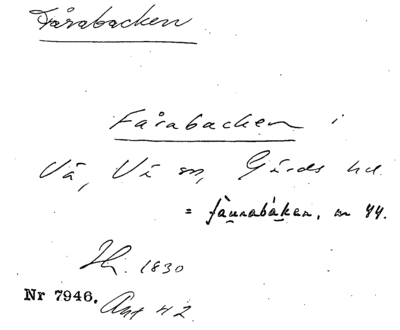 Fårabacken
Fårabacken i
Vä, Vä sn, Gärds hd
= fàurabákan, nr 44.
1830
Nr 7946. Ant 42